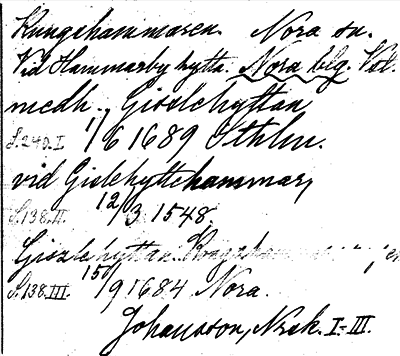 Kungshammaren. Nora sn.
Vid Hammarby hytta. Nora blg. Vol.
medh., Gisslehyttan
S. 240. I 1/6 1689 Sthlm.
vid Gislehyttehammar,
S. 138. II. 12/3 1548.
Giszlehyttan
S. 138. III. 15/9 1684 Nora.
Johansson, Nrsk. I-III.